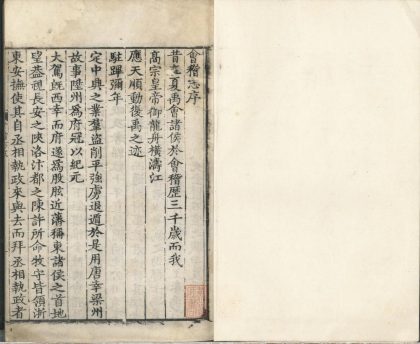 會稽志序
昔在夏禹會諸侯於會稽歷三千歲而我
高宗皇帝御龍舟橫濤江
應天順動復禹之迹
駐蹕彌年
定中興之業羣盜削平強虜退遁於是用唐幸梁州
故事陞州為府冠以紀元
大駕既西幸而府遂為股肱近藩稱東諸侯之首地
望蓋視長安之陝洛汴都之陳許所命牧守皆領浙
東安撫使其自丞相執政來與去而拜丞相執政者